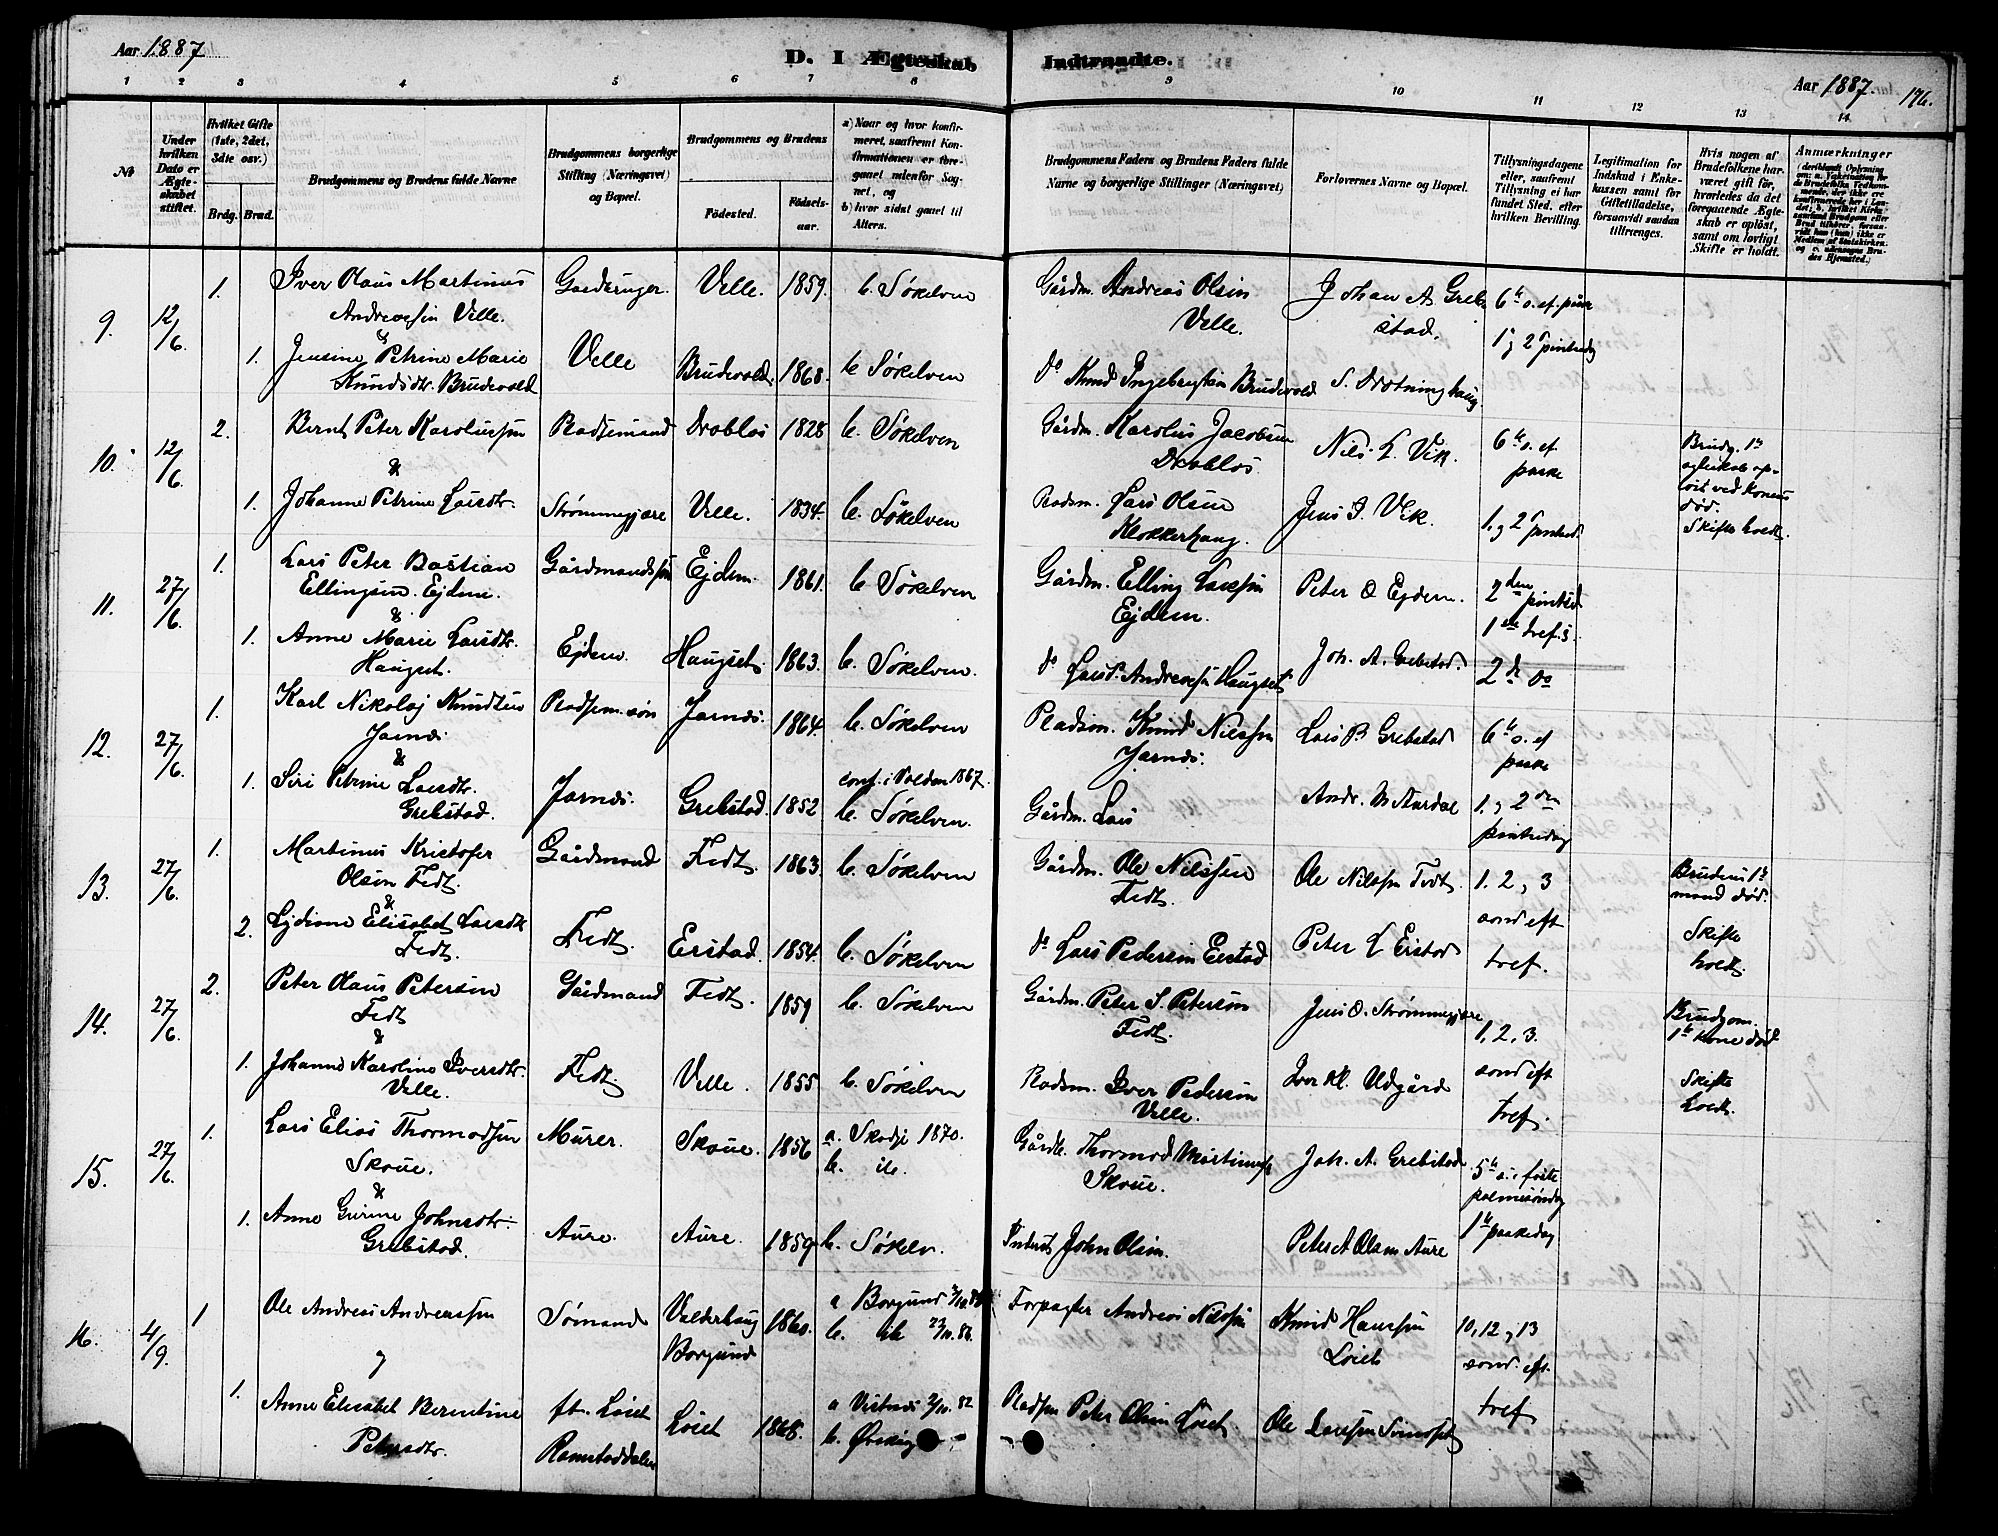 Aar 1887
D. I Ægteskab Indtraadte.
Aar 1887. 176.
1 2 3 4 5 6 7 8 9 10 11 12 13 14
No
Under hvilken Dato er Ægteskabet stiftet.
Hvilket Gifte (1ste, 2det, 3die osv.)
Brdg. Brud.
Brudgommens og Brudens fulde Navne
Brudgommens borgerlige Stilling (Næringsvei) og Bopæl.
Brudgommens og Brudens
Fødested. Fødselsaar.
a) Naar og hvor konfirmeret, saafremt Konfirmationen er foregaaet udenfor Sognet, og
b) hvor sidst gaaet til Alters.
Brudgommens Faders og Brudens Faders fulde Navne og borgerlige Stillinger (Næringsvei)
Forlovernes Navne og Bopæl.
Tillysningsdagene eller, saafremt Tillysning ei har fundet Sted, efter hvilken Bevilling.
Legitimation for Indskud i Enkekassen samt for Giftetilladelse, forsaavidt saadan tiltrænges.
Hvis nogen af Brudefolkene har været gift før, hvorledes da det foregaaende Ægteskab er opløst, samt om lovligt Skifte er holdt.
Anmærkninger
9. 12/6 1. Iver Olaus Martinus Velle. 1859. b. Søkelven Gårdm. Andreas Olsen Johan A Grebstad. 6te s. ef. påske
Andreasen Velle. Velle. 1 og 2
&
1. Jensine Petrine Marie Velle Brudevold. 1868. b. Søkelven do Knud Ingebrigtsen Brudevold S. Drotninghaug
Knudsdtr. Brudevold
10. 12/6 2. Bernt Peter Karolussen Pladsemand Drabløs 1828 b. Søkelven Gårdm. Karolus Jacobsen Nils L. Vik. 6te s. ef. paske Brudg. 1te
& Drabløs. død.
1. Johanne Petrine Larsdtr. Strømmegjære Velle. 1834. b. Søkelven Pladsm. Lars Olsen Jens I. Vik. Skifte holdt.
Klokkerhaug.
11. 27/6 1. Lars Peter Bastian Gårdmandssøn Ejdem 1861. b. Søkelven Gårdm. Elling Larsen Peter O Ejdem. 2den
Ellingsen Ejdem. Ejdem. 1ste tref. s.
&
1. Anne Marie Larsdtr. Ejdem. Haugset. 1863. b. Søkelven. do Lars P. Andreasen Haugset Joh. A. Grebstad. 2den do
Haugset.
12. 27/6 1. Karl Nikolaj Knudsen Jarnæs. 1864. b. Søkelven Pladsm. Knud Nilssen Lars P. Grebstad 6te s. ef påske
Jarnæs Jarnæs.
&
1. Siri Petrine Larsdtr. Jarnæs. Grebstad. 1852 conf. i Volden 1867. b. Søkelven. Gårdm. Lars Andr. M Aurdal 1. og 2den
Grebstad.
13. 27/6 1. Martinus Kristofer Gårdmand Fedt. 1863 b. Søkelven Gårdm. Ole Nilssen Ole Nilssen Fedt. 1. 2 og 3 Brudens 1te mand død.
Olsen Fedt. Fedt. sond eft
&
2. Lydiane Elisabet Larsdtr Fedt. Erstad. 1854. b. Søkelven do Lars Pedersen Erstad Peter L Erstad tref. Skifte holdt.
Fedt.
14. 27/6 2. Peter Olaus Petersen Gårdmand Fedt. 1859 b. Søkelven Gårdm. Peter S. Petersen Jens O. Strømmegjære 1, 2, 3. Brudgom. 1te kone død
Fedt Fedt. sond eft
&
1. Johanne Karoline Iversdtr. Fedt. Velle. 1855 b. Søkelven Pladsm. Iver Pedersen Iver Kl. Udgård tref. Skifte holdt.
Velle. Velle.
15. 27/6 1. Lars Elias Thormodsen Murer. Skoue. 1856 a. Skodje 1870. b. Gårdbr. Thormod Martinussen Joh. A. Grebstad 5te s. i faste palmesøndag
Skoue. Skoue.
&
1. Anne Gurine Johnsdtr. Aure. Aure. 1859 b. Søkelv. John Olsen. Peter A Olsen Aure 1te paskedag
Grebstad.
16. 4/9. 1 Ole Andreas Andreassen Sømand Valderhaug Borgund 1860. a Borgund b. Forpagter Andreas Nilssen Knud Hanssen 10, 12 og 13
og sond. eft.
1. Anne Elisabet Berntine ft. 1868. a Vestnæs b. Ørskog Peter Olsen Ole tref
Petersdtr. Ramstaddalen